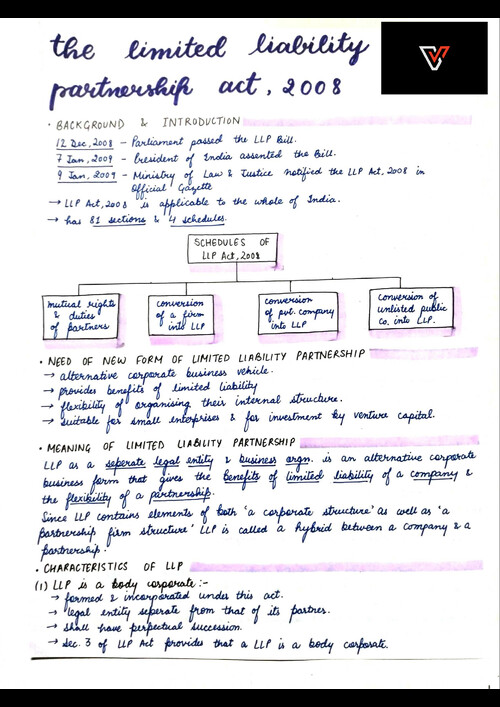 the limited liability
partnership act, 2008
• BACKGROUND & INTRODUCTION
12 Dec, 2008 – Parliament passed the LLP Bill.
7 Jan, 2009 – President of India assented the Bill.
9 Jan, 2009 – Ministry of Law & Justice notified the LLP Act, 2008 in
Official Gazette
→ LLP Act, 2008 is applicable to the whole of India.
→ has 81 sections & 4 schedules.
SCHEDULES OF
LLP Act, 2008
mutual rights
& duties
of partners
conversion
of a firm
into LLP
conversion
of pvt. company
into LLP
conversion of
unlisted public
co. into LLP.
• NEED OF NEW FORM OF LIMITED LIABILITY PARTNERSHIP
→ alternative corporate business vehicle.
→ provides benefits of limited liability
→ flexibility of organising their internal structure.
→ suitable for small enterprises & for investment by venture capital.
• MEANING OF LIMITED LIABILITY PARTNERSHIP
LLP as a seperate legal entity & business orgn. is an alternative corporate
business form that gives the benefits of limited liability of a company &
the flexibility of a partnership.
Since LLP contains elements of both 'a corporate structure' as well as 'a
partnership firm structure' LLP is called a hybrid between a company & a
partnership.
• CHARACTERISTICS OF LLP
(1) LLP is a body corporate :-
→ formed & incorporated under this act.
→ legal entity seperate from that of its partner.
→ shall have perpectual succession.
→ Sec. 3 of LLP Act provides that a LLP is a body corporate.